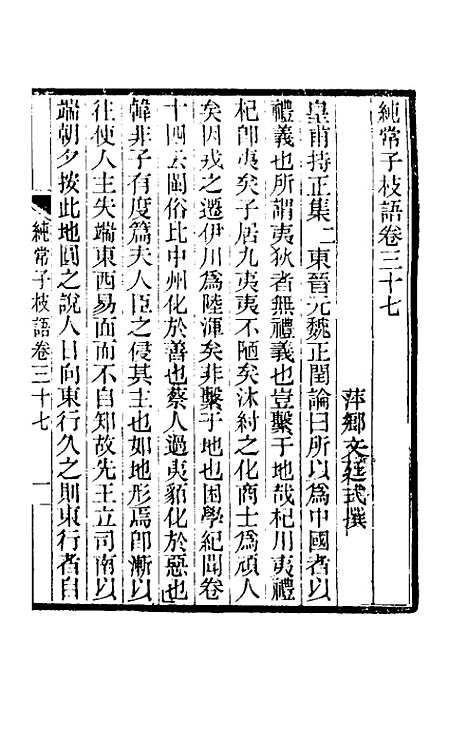 純常子枝語卷三十七
萍鄉文廷式撰
皇甫持正集二東晉元魏正閏論曰所以為中國者以
禮義也所謂夷狄者無禮義也豈繫于地哉杞用夷禮
杞卽夷矣子居九夷夷不陋矣沐紂之化商士為頑人
矣因戎之遷伊川為陸渾矣非繫于地也困學紀聞卷
十四云閩俗比中州化於善也蔡人過夷貊化於惡也
韓非子有度篇夫人臣之侵其主也如地形焉卽漸以
往使人主失端東西易面而不自知故先王立司南以
端朝夕按此地圓之說人日向東行久之則東行者自
純常子枝語卷三十七
一